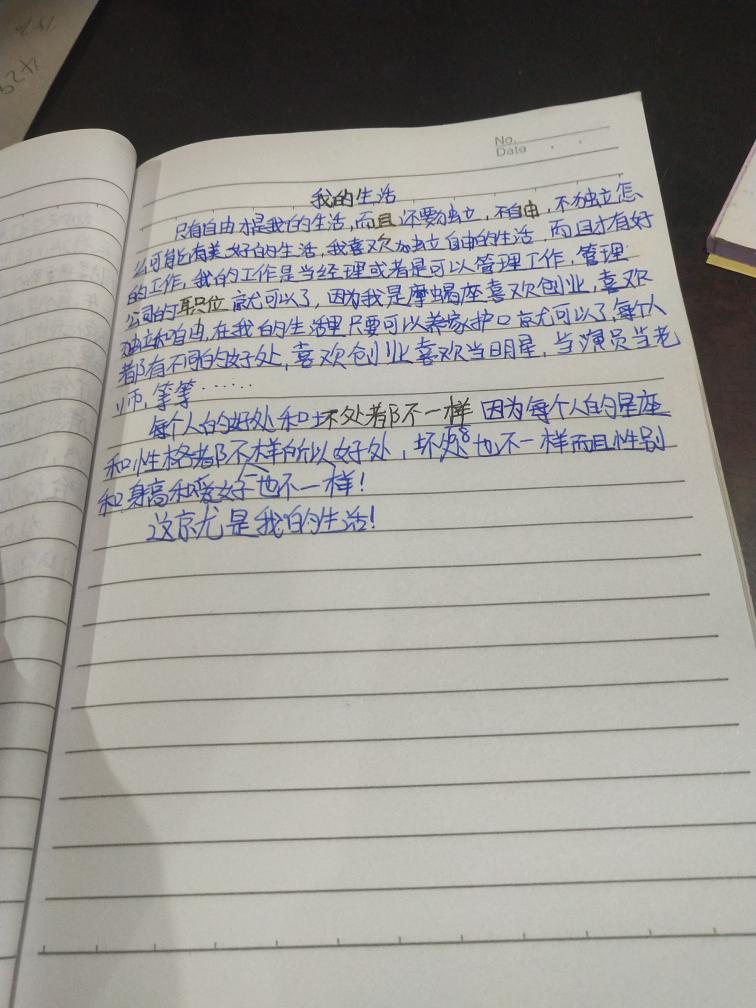 No.
Date
我的生活
只有自由才是我的生活,而且还要独立,不自由,不独立怎
么可能有美好的生活,我喜欢独立自由的生活,而且才有好
的工作,我的工作是当经理或者是可以管理工作,管理
公司的职位就可以了,因为我是摩蝎座喜欢创业,喜欢
独立和自由,在我的生活里只要可以养家护口就可以了,每个人
都有不同的好处,喜欢创业喜欢当明星,当演员当老
师,等等……
每个人的好处和坏处都不一样因为每个人的星座
和性格都不一样所以好处,坏处也不一样而且性别
和身高和爱好也不一样!
这就是我的生活!